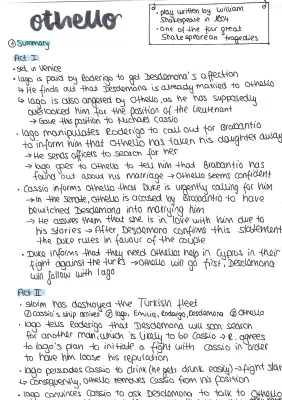 othello
• play written by William
Shakespeare in 1604
• one of the four great
Shakespearean tragedies
① Summary
Act I
• set in Venice
• Iago is paid by Roderigo to get Desdemona's affection
↳ He finds out that Desdemona is already married to Othello
↳ Iago is also angered by Othello, as he has supposedly
overlooked him for the position of the lieutenant
→ Gave this position to Michael Cassio
• Iago manipulates Roderigo to call out for Brabantio
to inform him that Othello has taken his daughter away
→ He sends officers to search for her
→ Iago goes to Othello to tell him that Brabantio has
found out about his marriage → Othello seems confident
• Cassio informs Othello that Duke is urgently calling for him
→ In the senate, Othello is accused by Brabantio to have
bewitched Desdemona into marrying him
→ He assures them that she is in love with him due to
his stories → After Desdemona confirms this statement
the Duke rules in favour of the couple
• Duke informs that they need Othellos help in Cyprus in their
fight against the turks → Othello will go first, Desdemona
will follow with Iago
Act II
• Storm has destroyed the Turkish fleet
① Cassio's ship arrives ② Iago, Emilia, Roderigo, Desdemona ③ Othello
• Iago tells Roderigo that Desdemona will soon search
for another man, which is likely to be Cassio → R. agrees
to Iago's plan to initiate a fight with Cassio in order
to have him loose his reputation
• Iago persuades Cassio to drink (he gets drunk easily) → fight starts
↳ Consequently, Othello removes Cassio from his position
• Iago convinces Cassio to ask Desdemona to talk to Othello